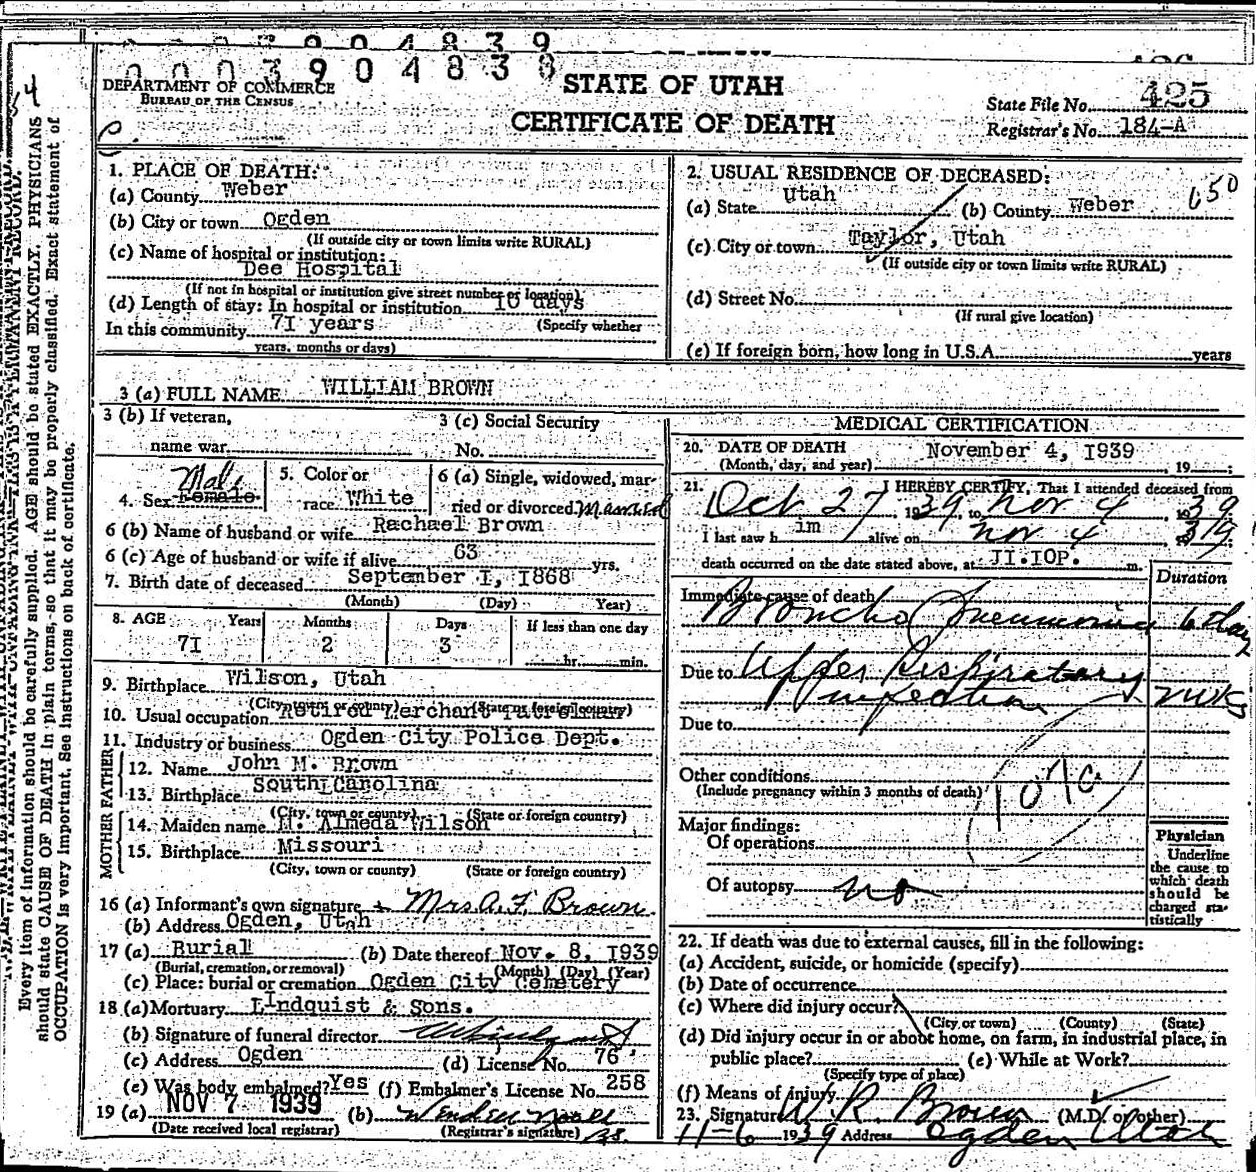 0 0 0 3 9 0 4 8 3 9
DEPARTMENT OF COMMERCE
BUREAU OF THE CENSUS
STATE OF UTAH
CERTIFICATE OF DEATH
State File No. 425
Registrar's No. 184-A
54
C.
1. PLACE OF DEATH:
(a) County Weber
(b) City or town Ogden
(If outside city or town limits write RURAL)
(c) Name of hospital or institution:
Dee Hospital
(If not in hospital or institution give street number or location)
(d) Length of stay: In hospital or institution 10 days
In this community 7I years (Specify whether
years, months or days)
2. USUAL RESIDENCE OF DECEASED:
650
(a) State Utah (b) County Weber
(c) City or town Taylor, Utah
(If outside city or town limits write RURAL)
(d) Street No.
(If rural give location)
(e) If foreign born, how long in U.S.A. years
3 (a) FULL NAME WILLIAM BROWN
3 (b) If veteran,
name war
3 (c) Social Security
No.
4. Sex Female Male
5. Color or
race White
6 (a) Single, widowed, mar-
ried or divorced Married
6 (b) Name of husband or wife Rachael Brown
6 (c) Age of husband or wife if alive 63 yrs.
7. Birth date of deceased September I, I868
(Month) (Day) Year)
8. AGE Years Months Days If less than one day
7I 2 3 hr. min.
9. Birthplace Wilson, Utah
(City, town or county) (State or foreign country)
10. Usual occupation Retired Merchant Patrolman
11. Industry or business Ogden City Police Dept.
FATHER
12. Name John M. Brown
13. Birthplace South Carolina
(City, town or county) (State or foreign country)
MOTHER
14. Maiden name M. Almeda Wilson
15. Birthplace Missouri
(City, town or county) (State or foreign country)
16 (a) Informant's own signature Mrs A. F. Brown
(b) Address Ogden, Utah
17 (a) Burial (b) Date thereof Nov. 8, I939
(Burial, cremation, or removal) (Month) (Day) (Year)
(c) Place: burial or cremation Ogden City Cemetery
18 (a) Mortuary LIndquist & Sons.
(b) Signature of funeral director
(c) Address Ogden (d) License No. 76
(e) Was body embalmed? Yes (f) Embalmer's License No. 258
19 (a) NOV 7 1939 (b)
(Date received local registrar) (Registrar's signature)
MEDICAL CERTIFICATION
20. DATE OF DEATH November 4, I939
(Month, day, and year) , 19 ;
21. I HEREBY CERTIFY, That I attended deceased from
Oct 27 1939, to Nov 4, 1939
I last saw h im alive on Nov 4, 1939
death occurred on the date stated above, at II.IOP. m.
Duration
Immediate cause of death
Broncho Pneumonia 6 day
Due to Upper Respiratory
infection 2 wks
Due to
Other conditions
(Include pregnancy within 3 months of death)
Major findings:
Of operations
Of autopsy no
Physician
Underline
the cause to
which death
should be
charged sta-
tistically
22. If death was due to external causes, fill in the following:
(a) Accident, suicide, or homicide (specify)
(b) Date of occurrence
(c) Where did injury occur?
(City or town) (County) (State)
(d) Did injury occur in or about home, on farm, in industrial place, in
public place? (e) While at Work?
(Specify type of place)
(f) Means of injury
23. Signature W. R. Brown (M.D. or other)
11-6 1939 Address Ogden Utah
Every item of information should be carefully supplied. AGE should be stated EXACTLY. PHYSICIANS
should state CAUSE OF DEATH in plain terms, so that it may be properly classified. Exact statement of
OCCUPATION is very important. See instructions on back of certificate.